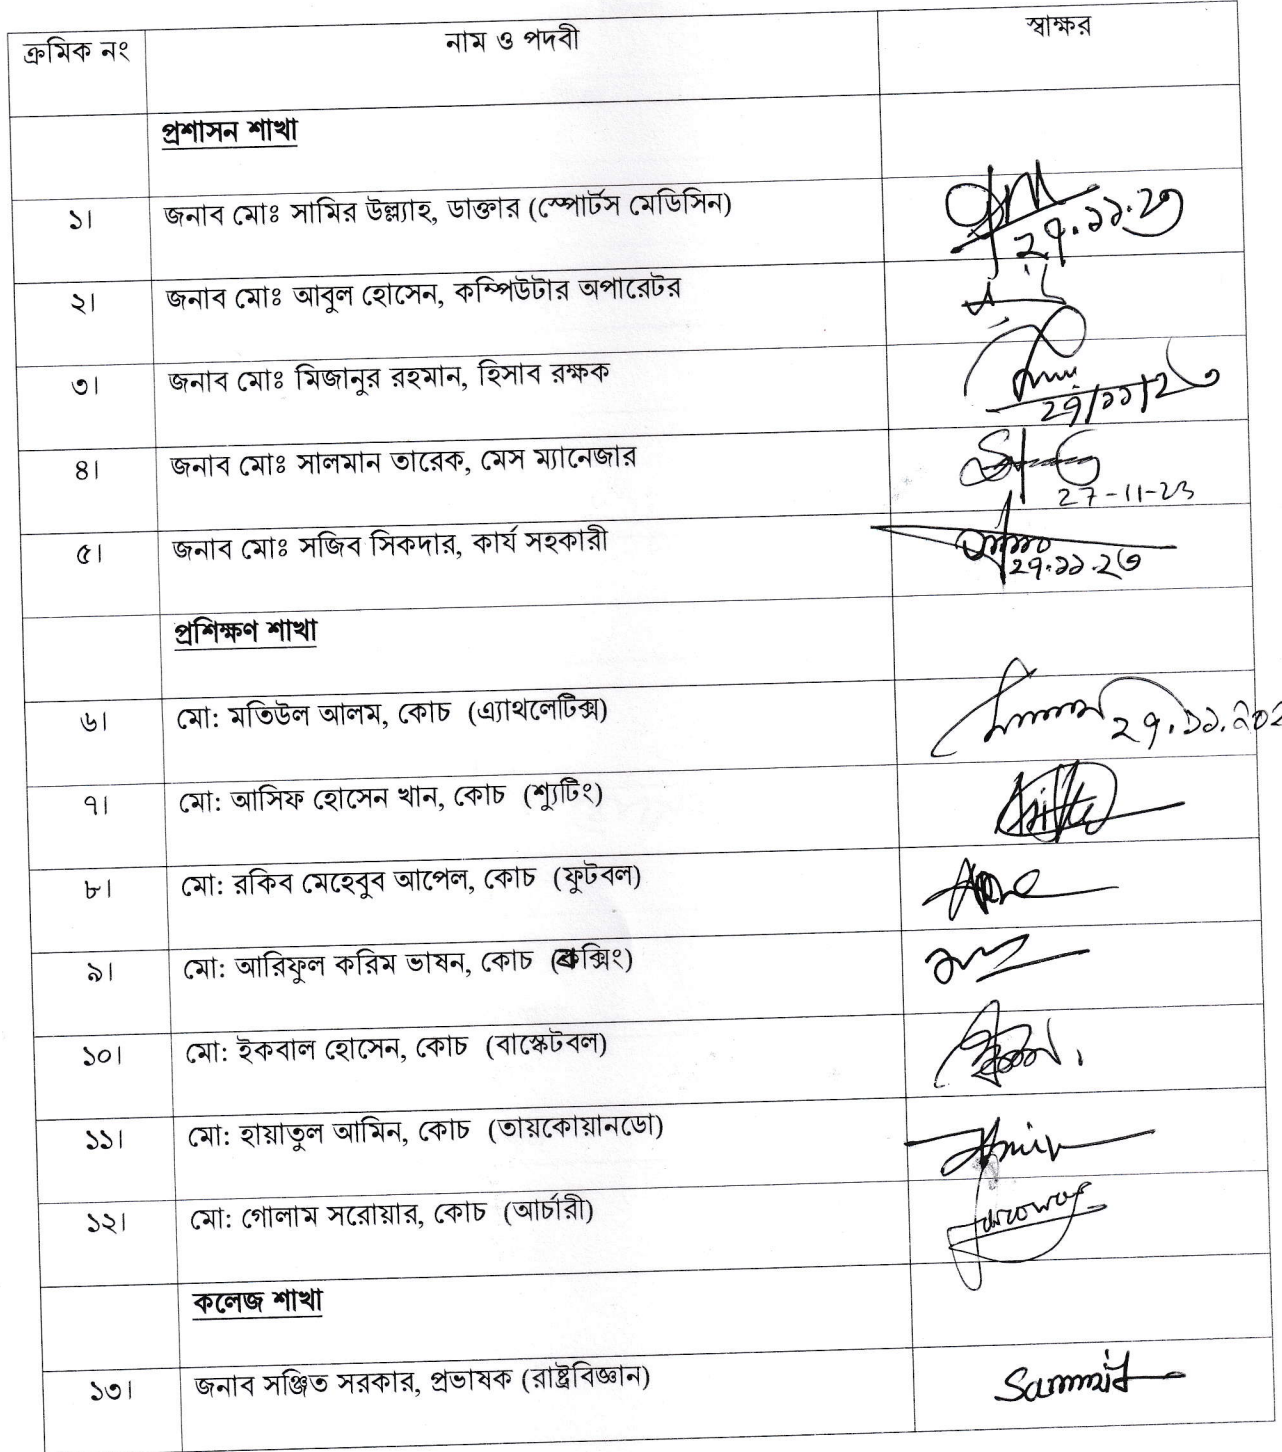 ক্রমিক নং নাম ও পদবী স্বাক্ষর
প্রশাসন শাখা
১। জনাব মোঃ সামির উল্ল্যাহ, ডাক্তার (স্পোর্টস মেডিসিন)
২৭.১১.২৩
২। জনাব মোঃ আবুল হোসেন, কম্পিউটার অপারেটর
৩। জনাব মোঃ মিজানুর রহমান, হিসাব রক্ষক
২৭/১১/২৩
৪। জনাব মোঃ সালমান তারেক, মেস ম্যানেজার
27-11-23
৫। জনাব মোঃ সজিব সিকদার, কার্য সহকারী
২৭.১১.২৩
প্রশিক্ষণ শাখা
৬। মো: মতিউল আলম, কোচ (এ্যাথলেটিক্স)
২৭.১১.২০২
৭। মো: আসিফ হোসেন খান, কোচ (শ্যুটিং)
৮। মো: রকিব মেহেবুব আপেল, কোচ (ফুটবল)
৯। মো: আরিফুল করিম ভাষন, কোচ (বক্সিং)
১০। মো: ইকবাল হোসেন, কোচ (বাস্কেটবল)
১১। মো: হায়াতুল আমিন, কোচ (তায়কোয়ানডো)
Amin
১২। মো: গোলাম সরোয়ার, কোচ (আর্চারী)
কলেজ শাখা
১৩। জনাব সঞ্জিত সরকার, প্রভাষক (রাষ্ট্রবিজ্ঞান)